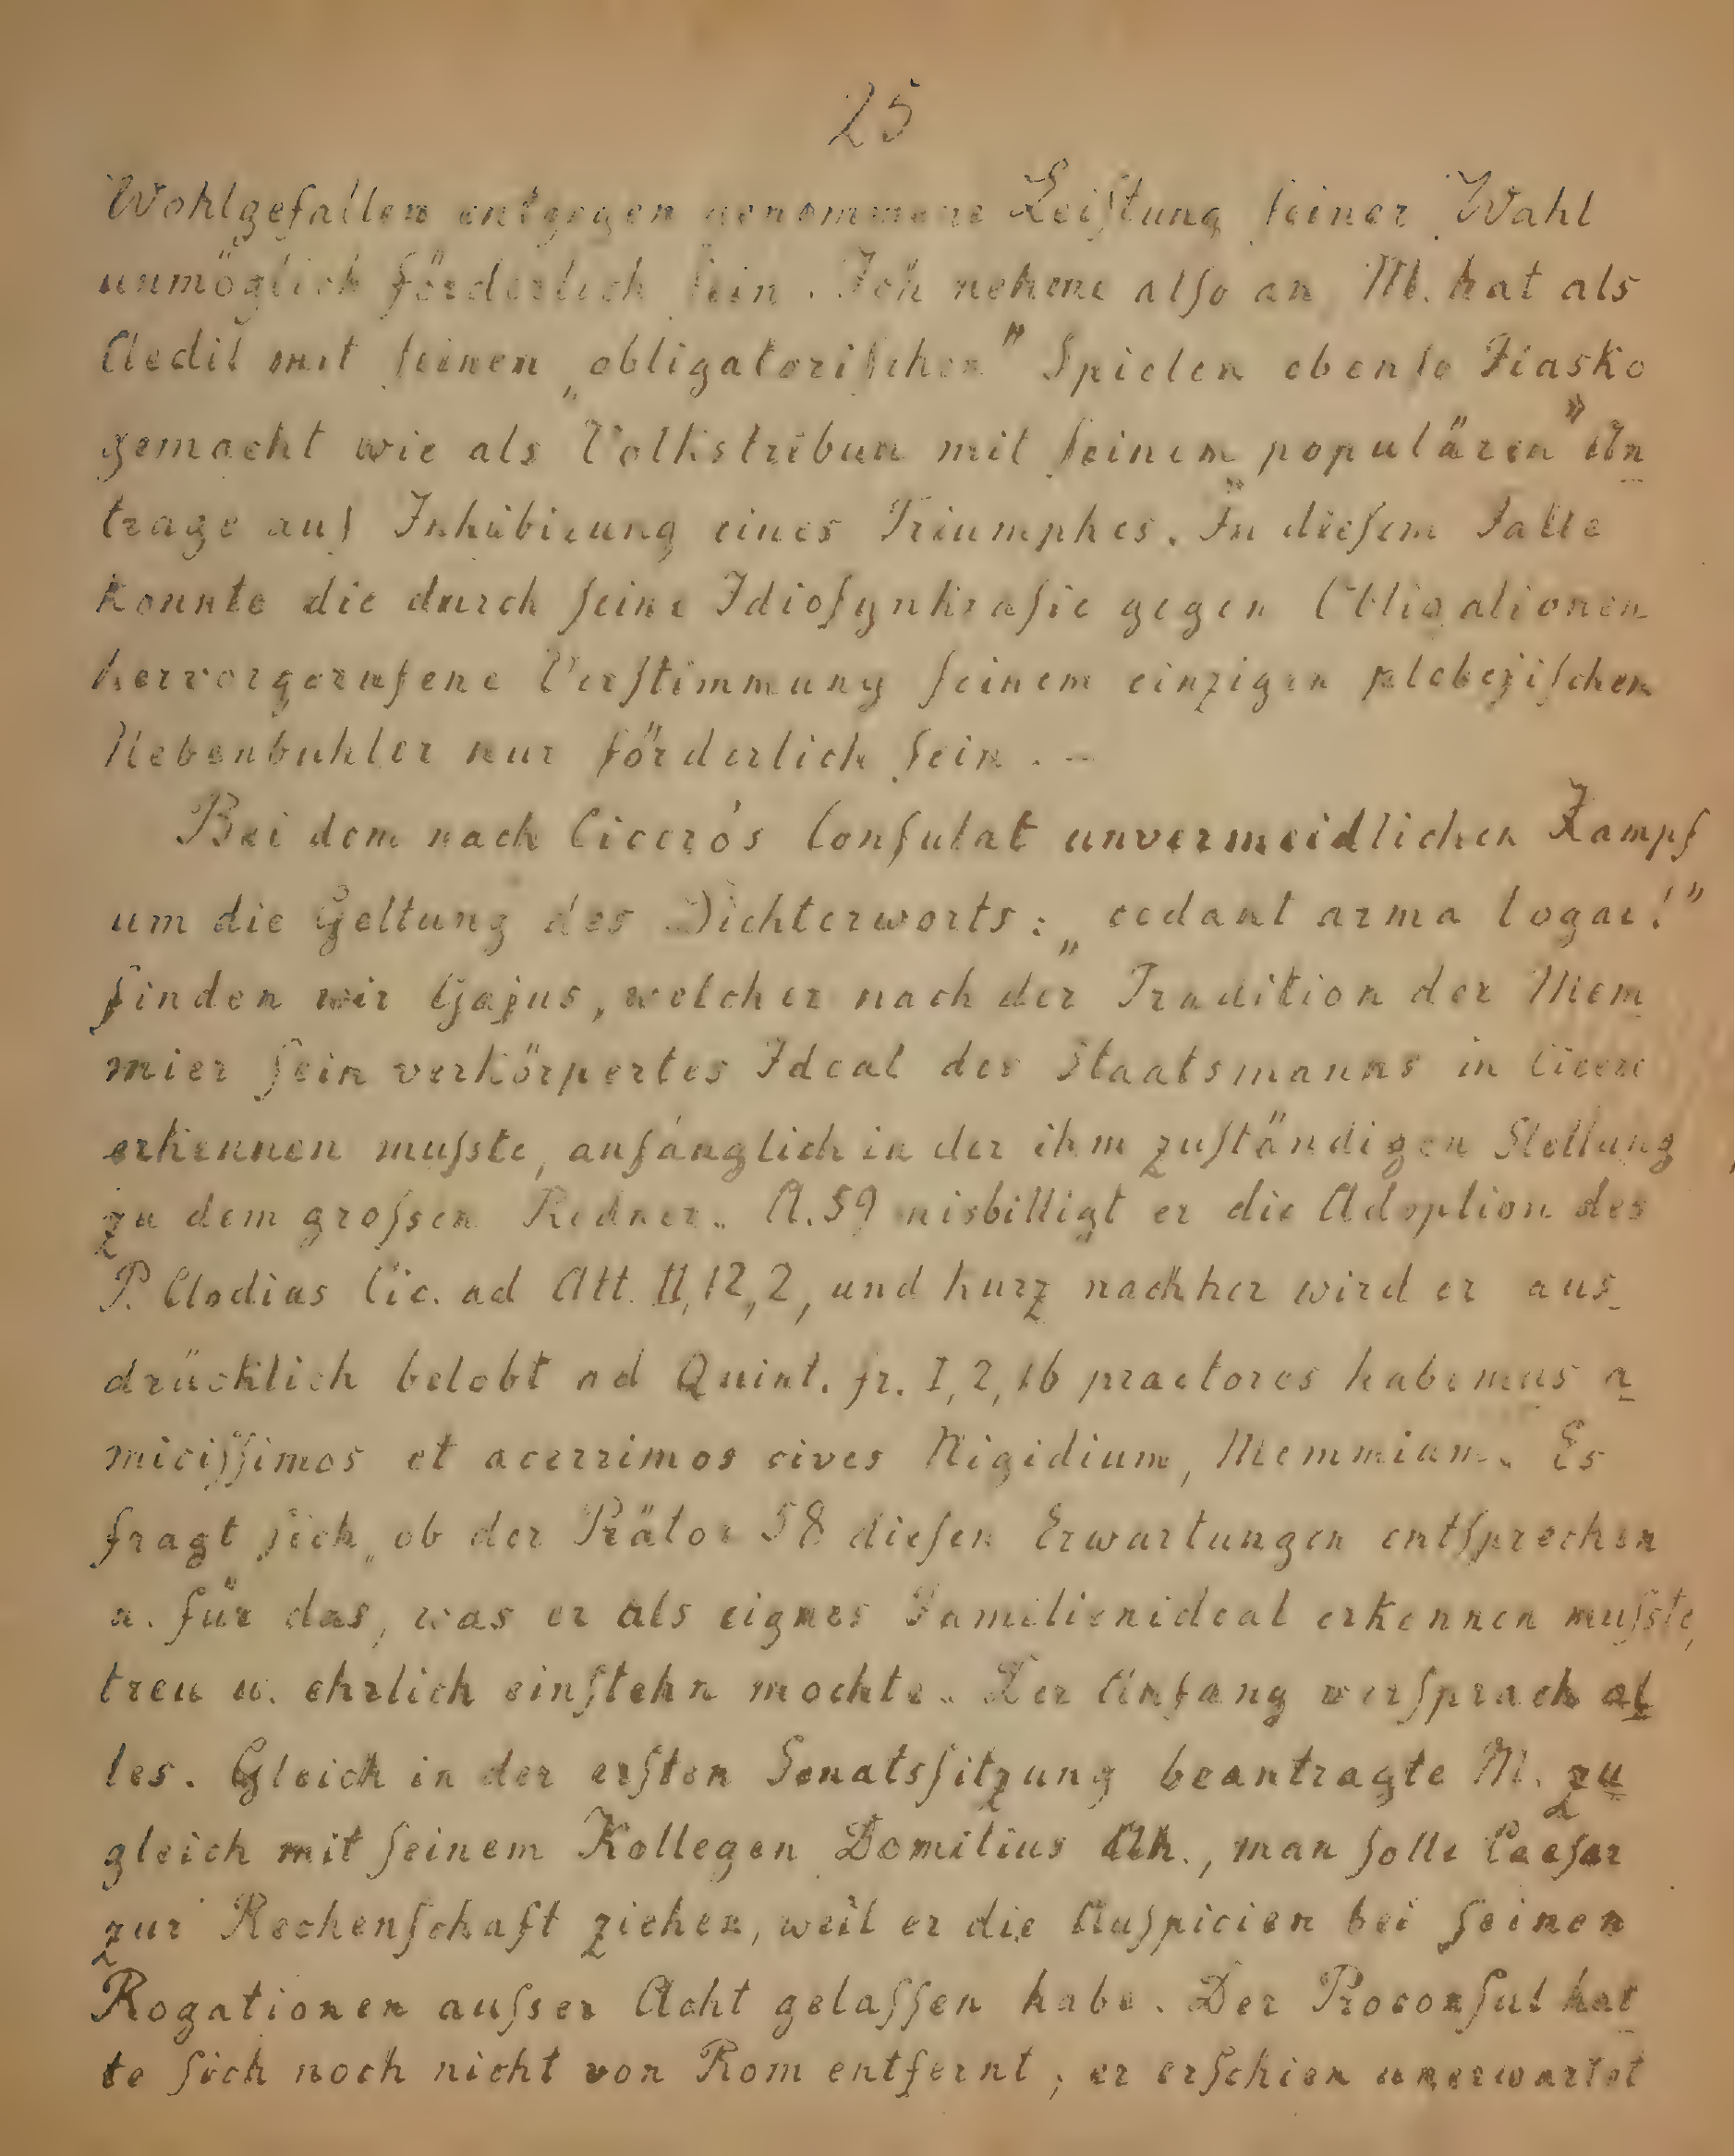 25
Wohlgefallen entgegen genommene Leiſtung ſeiner Wahl
unmöglich förderlich ſein. Ich nehme alſo an, M. hat als
Aedil mit ſeinen „obligatoriſchen" Spielen ebenſo Fiasko
gemacht wie als Volkstribun mit ſeinem „populären" An
trage auf Inhibirung eines Triumphes. In dieſem Falle
konnte die durch ſeine Idioſynkraſie gegen Obligationen
hervorgerufene Verſtimmung ſeinem einzigen plebejiſchen
Nebenbuhler nur förderlich ſein. –
Bei dem nach Cicero's Conſulat unvermeidlichen Kampf
um die Geltung des Dichterworts: „cedant arma togae!"
finden wir Gajus, welcher nach der Tradition der Mem
mier ſein verkörpertes Ideal des Staatsmanns in Cicero
erkennen muſste, anfänglich in der ihm zuſtändigen Stellung
zu dem groſsen Redner. A. 59 misbilligt er die Adoption des
P. Clodius Cic. ad Att. II, 12, 2, und kurz nachher wird er aus-
drücklich belobt ad Quint. fr. I, 2, 16 praetores habemus a
miciſſimos et acerrimos cives Nigidium, Memmium. Es
fragt ſich, ob der Prätor 58 dieſen Erwartungen entſprechen
u. für das, was er als eignes Familienideal erkennen muſste,
treu u. ehrlich einſtehn mochte. Der Anfang verſprach al
les. Gleich in der erſten Senatsſitzung beantragte M. zu
gleich mit ſeinem Kollegen Domitius Ah., man ſolle Caeſar
zur Rechenſchaft ziehen, weil er die Auſpicien bei ſeinen
Rogationen auſser Acht gelaſſen habe. Der Proconſul hat
te ſich noch nicht von Rom entfernt; er erſchien unerwartet